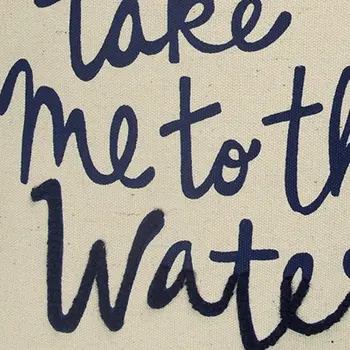 take
me to th
Wate